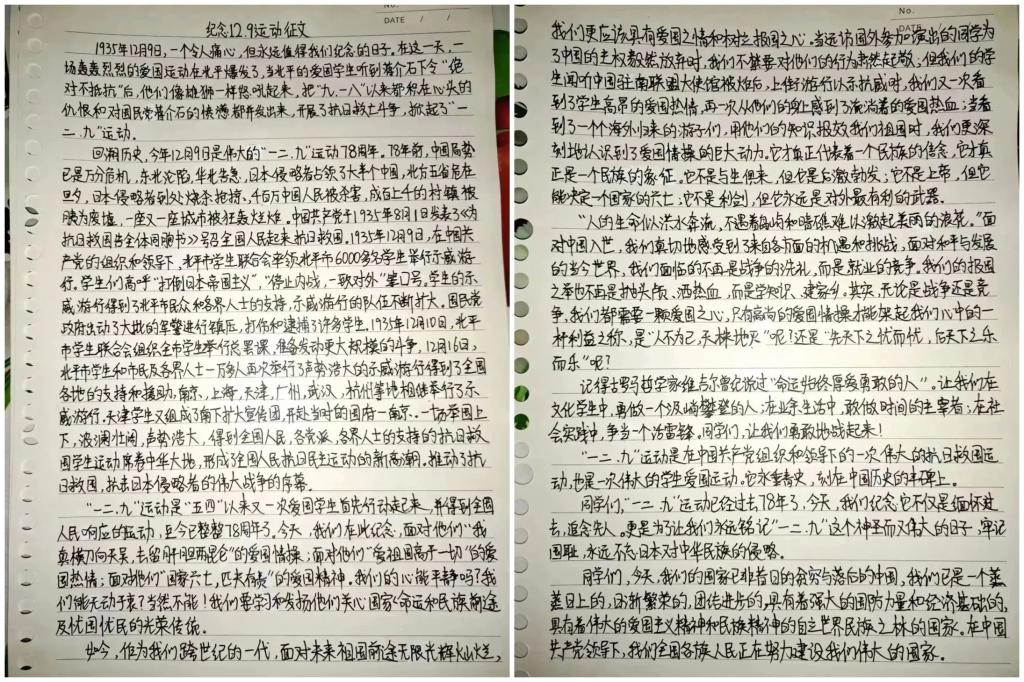 纪念12.9运动征文
1935年12月9日,一个令人痛心,但永远值得我们纪念的日子。在这一天,一
场轰轰烈烈的爱国运动在北平爆发了,当北平的爱国学生听到蒋介石下令“绝
对不抵抗”后,他们像雄狮一样怒吼起来,把“九.一八”以来郁积在心头的
仇恨和对国民党蒋介石的愤怒都并发出来,开展了抗日救亡斗争,掀起了“一
二.九”运动。
回溯历史,今年12月9日是伟大的“一二.九”运动78周年。78年前,中国局势
已是万分危机,东北沦陷,华北告急,日本侵略者占领了大半个中国,北方五省危在
旦夕,日本侵略者到处烧杀抢掠,千百万中国人民被杀害,成百上千的村镇被
贱为废墟,一座又一座城市被狂轰烂炸。中国共产党于1935年8月1日发表了《为
抗日救国告全体同胞书》号召全国人民起来抗日救国。1935年12月9日,在中国共
产党的组织和领导下,北平市学生联合会率领北平市6000多名学生举行示威游
行。学生们高呼“打倒日本帝国主义”,“停止内战,一致对外”等口号,学生的示
威游行得到了北平市民众和各界人士的支持,示威游行的队伍不断扩大。国民党
政府出动了大批的军警进行镇压,打伤和逮捕了许多学生。1935年12月10日,北平
市学生联合会组织全市学生举行总罢课,准备发动更大规模的斗争,12月16日,
北平市学生和市民及各界人士一万多人再次举行了声势浩大的示威游行得到了全国
各地的支持和援助。南京,上海,天津,广州,武汉,杭州等地相继举行了示
威游行,天津学生又组成了南下扩大宣传团,开赴当时的国府一南京。一场举国上
下,波澜壮阔,声势浩大,得到全国人民,各党派,各界人士的支持的抗日救
国学生运动席卷中华大地,形成了全国人民抗日民主运动的新高潮,推动了抗
日救国,抗击日本侵略者的伟大战争的序幕。
“一二.九”运动是“五四”以来又一次爱国学生首先行动起来,并得到全国
人民响应的运动,至今已整整78周年了。今天,我们在此纪念,面对他们“我
真横刀向天昊,去留肝胆两昆仑”的爱国情操;面对他们“爱祖国高于一切”的爱
国热情;面对他们“国家亡亡,匹夫有责”的爱国精神。我们的心能平静吗?我
们能无动于衷?当然不能!我们要学习和发扬他们关心国家命运和民族前途
及忧国忧民的光荣传统。
如今,作为我们跨世纪的一代,面对未来祖国前途无限光辉灿烂,
No.
DATE / /
No.
DATE / /
我们更应该具有爱国之情和树立报国之心。当远访国外参加演出的同学为
了中国的主权毅然放弃时,我们不禁要对他们的行为肃然起敬;但我们的学
生闻听中国驻南联盟大使馆被炸后,上街游行以示抗威时,我们又一次看
到了学生高昂的爱国热情,再一次从他们的身上感到了流淌着的爱国热血;当看
到了一个个海外归来的游子们,用他们的知识报效我们祖国时,我们更深
刻地认识到了爱国情操的巨大动力。它才真正代表着一个民族的信念,它才真
正是一个民族的象征。它不是与生俱来,但它是后激勃发;它不是上帝,但它
能决定一个国家的亡亡;它不是利剑,但它永远是对外最有利的武器。
“人的生命似洪水奔流,不遇着岛屿和暗礁难以激起美丽的浪花。”面
对中国入世,我们真切地感受到了来自各方面的机遇和挑战,面对和平与发展
的当今世界,我们面临的不再是战争的洗礼,而是就业的竞争。我们的报国
之举也不再是抛头颅、洒热血,而是学知识、建家乡。其实,无论是战争还是竞
争,我们都需要一颗爱国之心,只有高尚的爱国情操才能架起我们心中的一
杆利益之称,是“人不为己,天株地灭”呢?还是“先天下之忧而忧,后天下之乐
而乐”呢?
记得古罗马哲学家维吉尔曾说过“命运始终厚爱勇敢的人”。让我们在
文化学生中,勇做一个汲峭攀登的人;在业余生活中,敢做时间的主宰者;在社
会实践中,争当一个活雷锋。同学们,让我们勇敢地战起来!
“一二.九”运动是在中国共产党组织和领导下的一次伟大的抗日救国运
动,也是一次伟大的学生爱国运动。它永垂青史,刻在中国历史的丰碑上。
同学们,“一二.九”运动已经过去78年了,今天,我们纪念它不仅是缅怀过
去,追念先人。更是为了让我们永远铭记“一二.九”这个神圣而又伟大的日子,牢记
国耻,永远不忘日本对中华民族的侵略。
同学们,今天,我们的国家已非昔日的贫穷与落后的中国,我们已是一个蒸
蒸日上的,日新繁荣的,团结进步的,具有着强大的国防力量和经济基础的,
具有着伟大的爱国主义精神和民族精神的自立世界民族之林的国家。在中国
共产党领导下,我们全国各族人民正在努力建设我们伟大的国家。